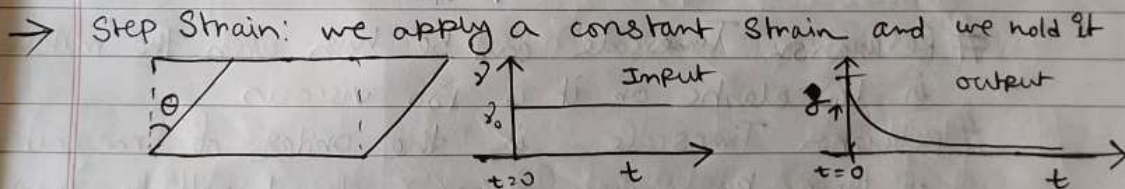 → Step Strain: we apply a constant strain and we hold it
θ
γ
γ₀
Input
t=0
t
output
t=0
t